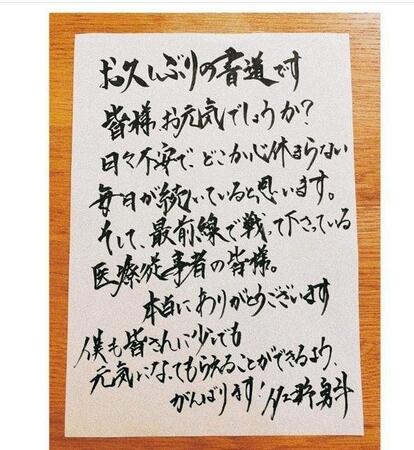 お久しぶりの書道です
皆様お元気でしょうか?
日々不安で、どこか心休まらない
毎日が続いていると思います。
そして、最前線で戦って下さっている
医療従事者の皆様。
本当にありがとうございます
僕も皆さんに少しでも
元気になってもらえることができるよう、
がんばります! 佐野勇斗